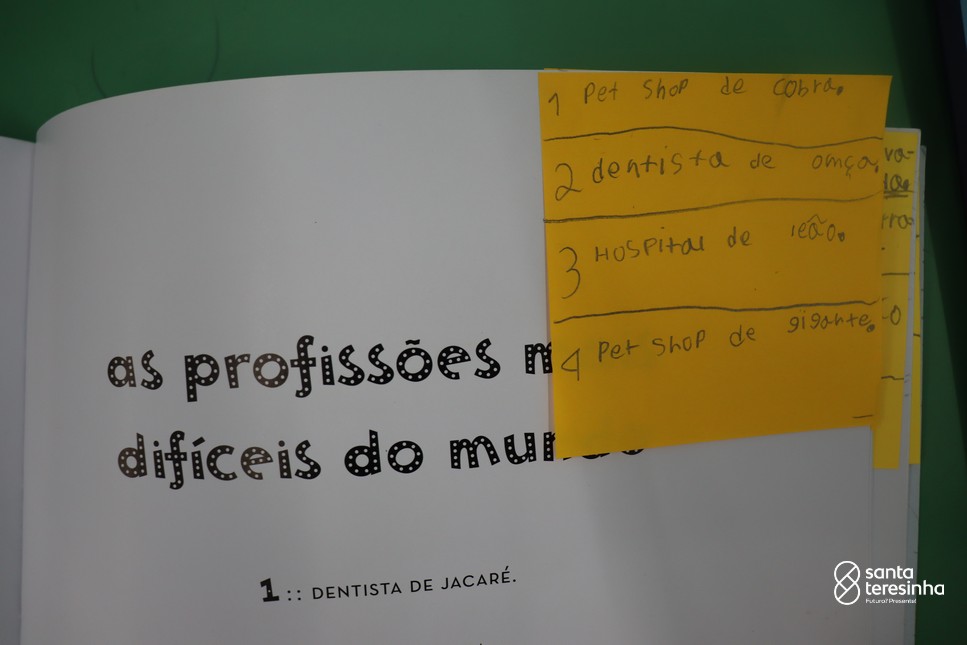 1 Pet shop de cobra.
2 dentista de omça.
3 Hospital de leão.
4 Pet shop de gigante.
as profissões
difíceis do mundo
1 :: DENTISTA DE JACARÉ.
santa
teresinha
Futuro? Presente!